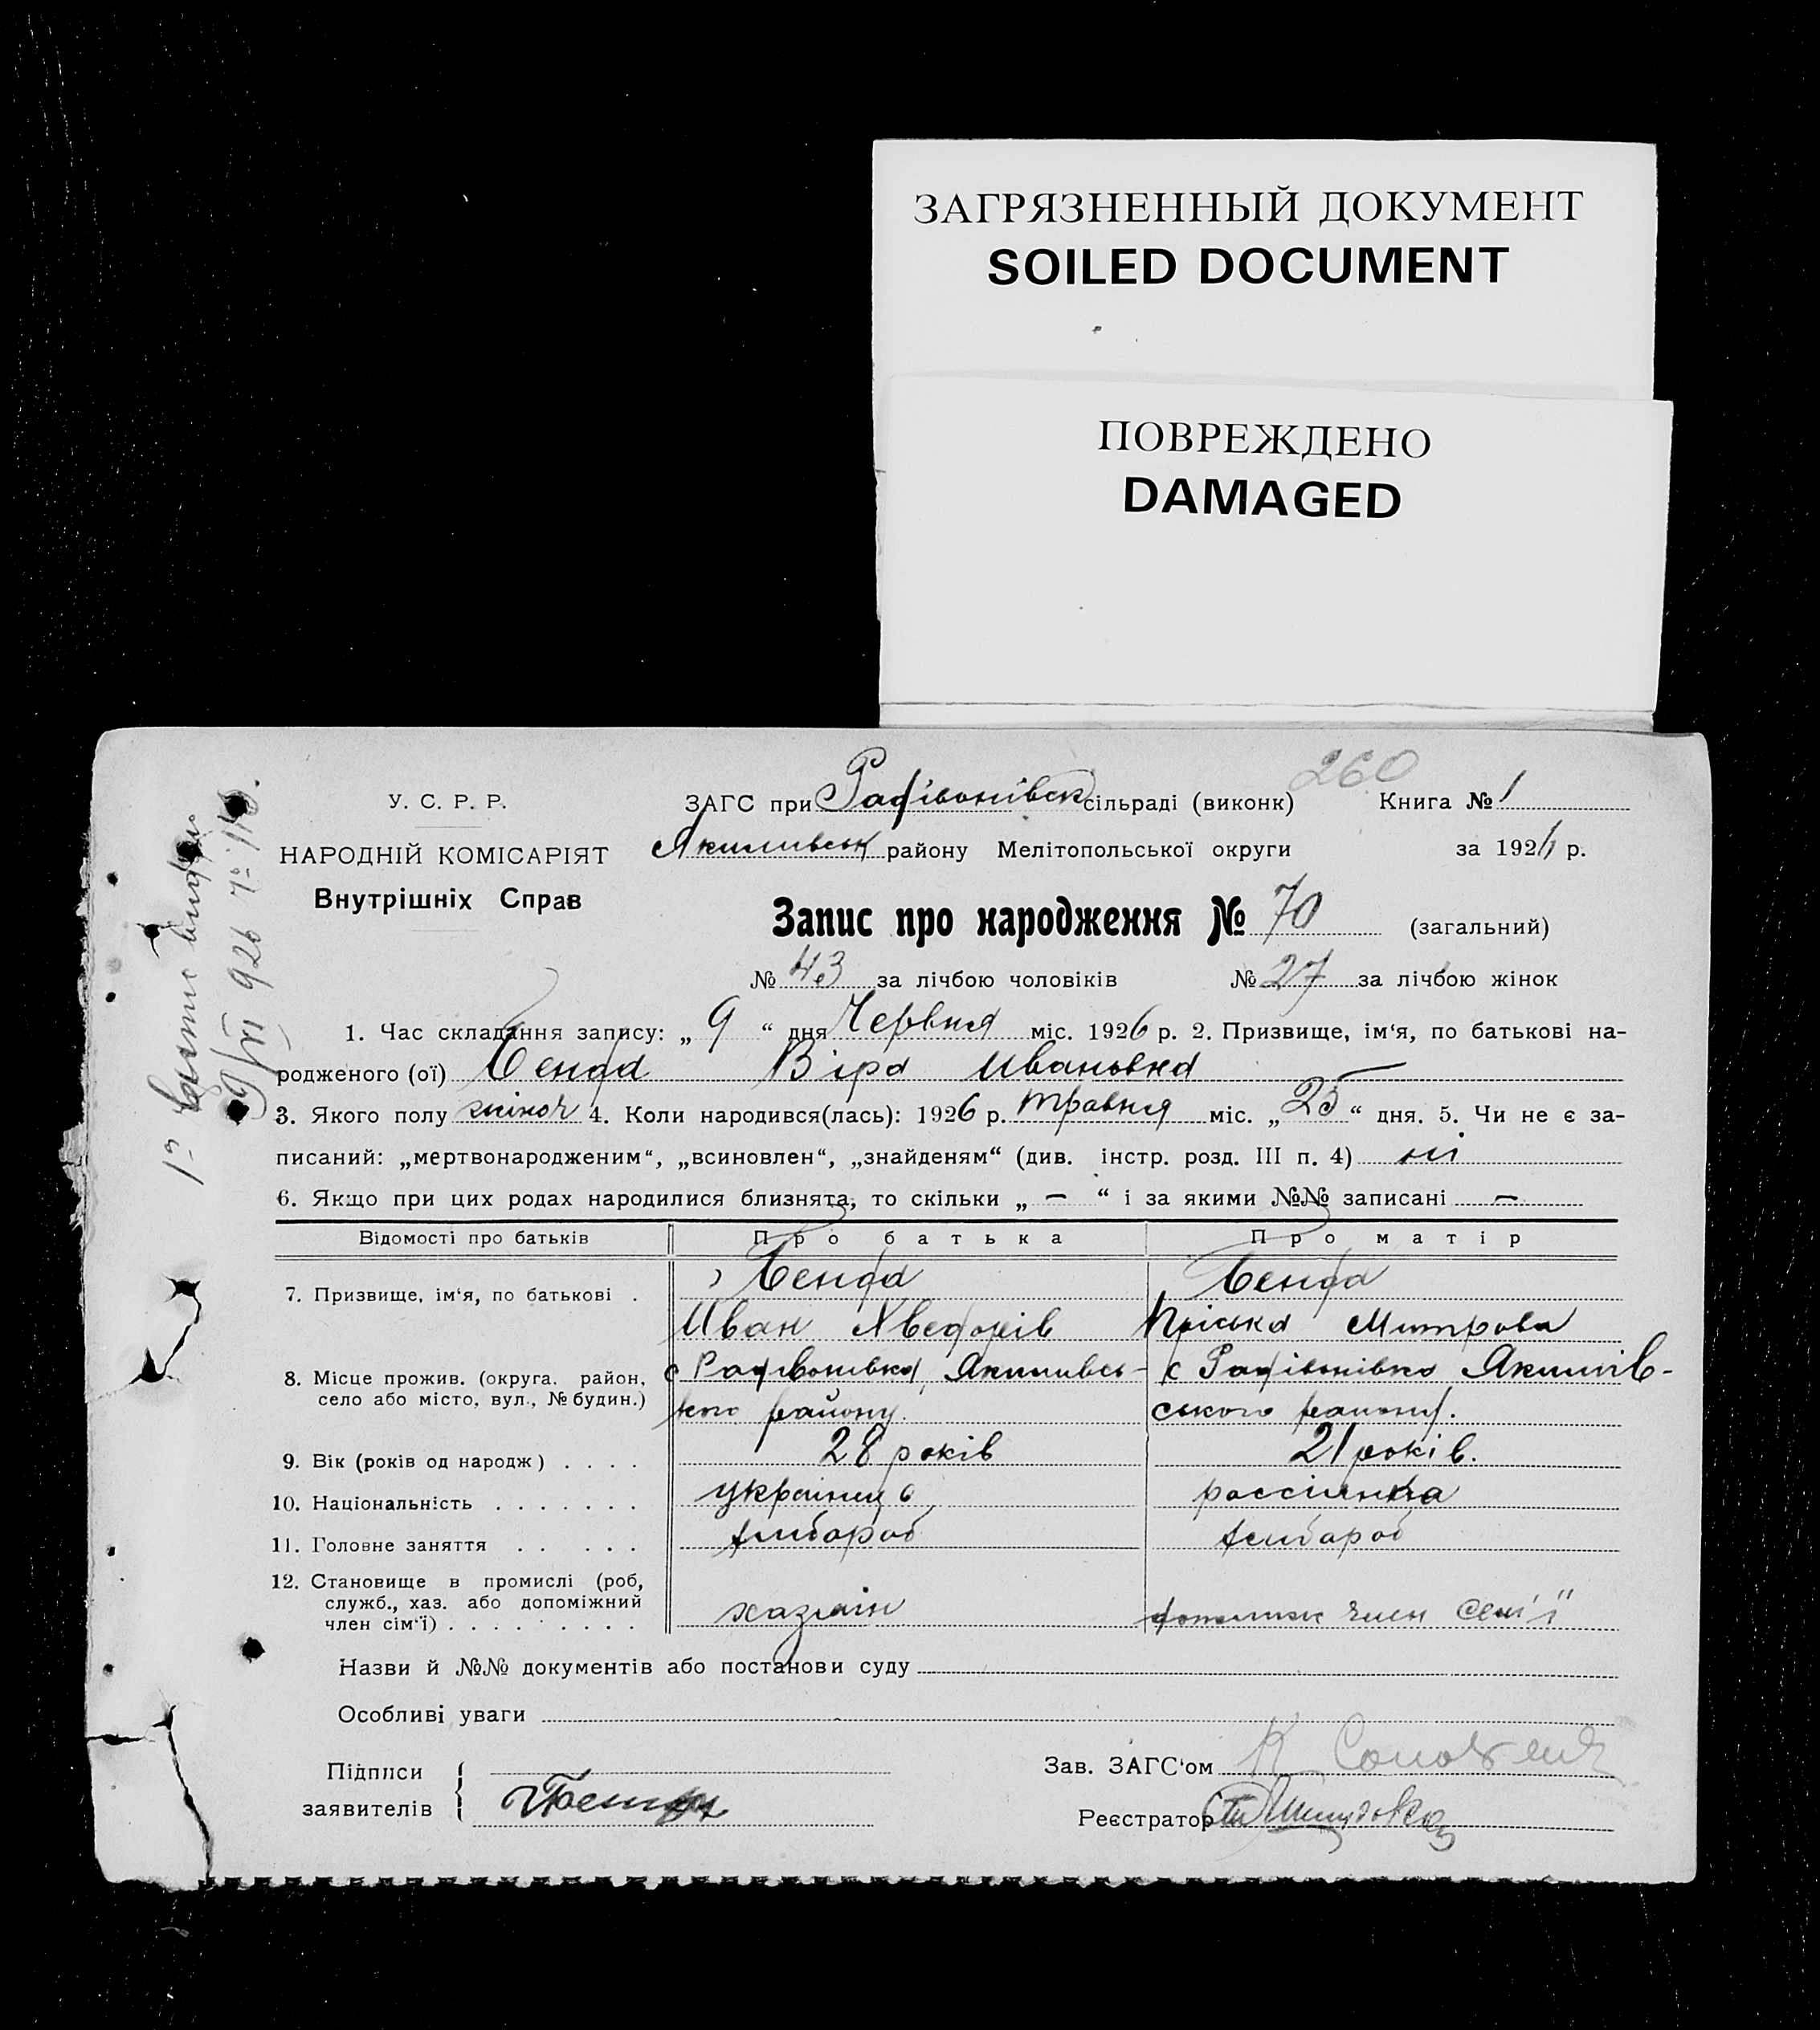 ЗАГРЯЗНЕННЫЙ ДОКУМЕНТ
SOILED DOCUMENT
ПОВРЕЖДЕНО
DAMAGED
260
У. С. Р. Р.
НАРОДНІЙ КОМІСАРІЯТ
Внутрішніх Справ
ЗАГС при Радівонівск сільраді (виконк) Книга № 1
Якимивськ району Мелітопольської округи за 192 р.
Запис про народження № 70 (загальний)
№ 43 за лічбою чоловіків № 27 за лічбою жінок
1. Час складання запису: „ 9 “ дня Червня міс. 1926 р. 2. Призвище, ім‘я, по батькові на-
родженого (ої) Бенда Віра Ивановна
3. Якого полу жіноч 4. Коли народився(лась): 1926 р. травня міс. „ 25 “ дня. 5. Чи не є за-
писаний: „мертвонародженим“, „всиновлен“, „знайденям“ (див. інстр. розд. III п. 4) ні
6. Якщо при цих родах народилися близнята, то скільки „ — “ і за якими №№ записані —
Відомості про батьків Про батька Про матір
7. Призвище, ім‘я, по батькові . Бенда Бенда
Иван Хведорів Пріська Митрова
8. Місце прожив. (округа, район, село або місто, вул., № будин.) с Радивонивка, Якимивсь- с Радівонівка Якимів-
кого району. ського району.
9. Вік (років од народж) . . . . 28 років 21 років.
10. Національність . . . . . . . українець россіянка
11. Головне заняття . . . . . хлібороб хлібороб
12. Становище в промислі (роб, служб., хаз. або допоміжний член сім‘ї) . . . . . . . . хазяін допоміжн член сем'ї
Назви й №№ документів або постанови суду
Особливі уваги
Підписи
заявителів
Зав. ЗАГС‘ом
Реєстратор